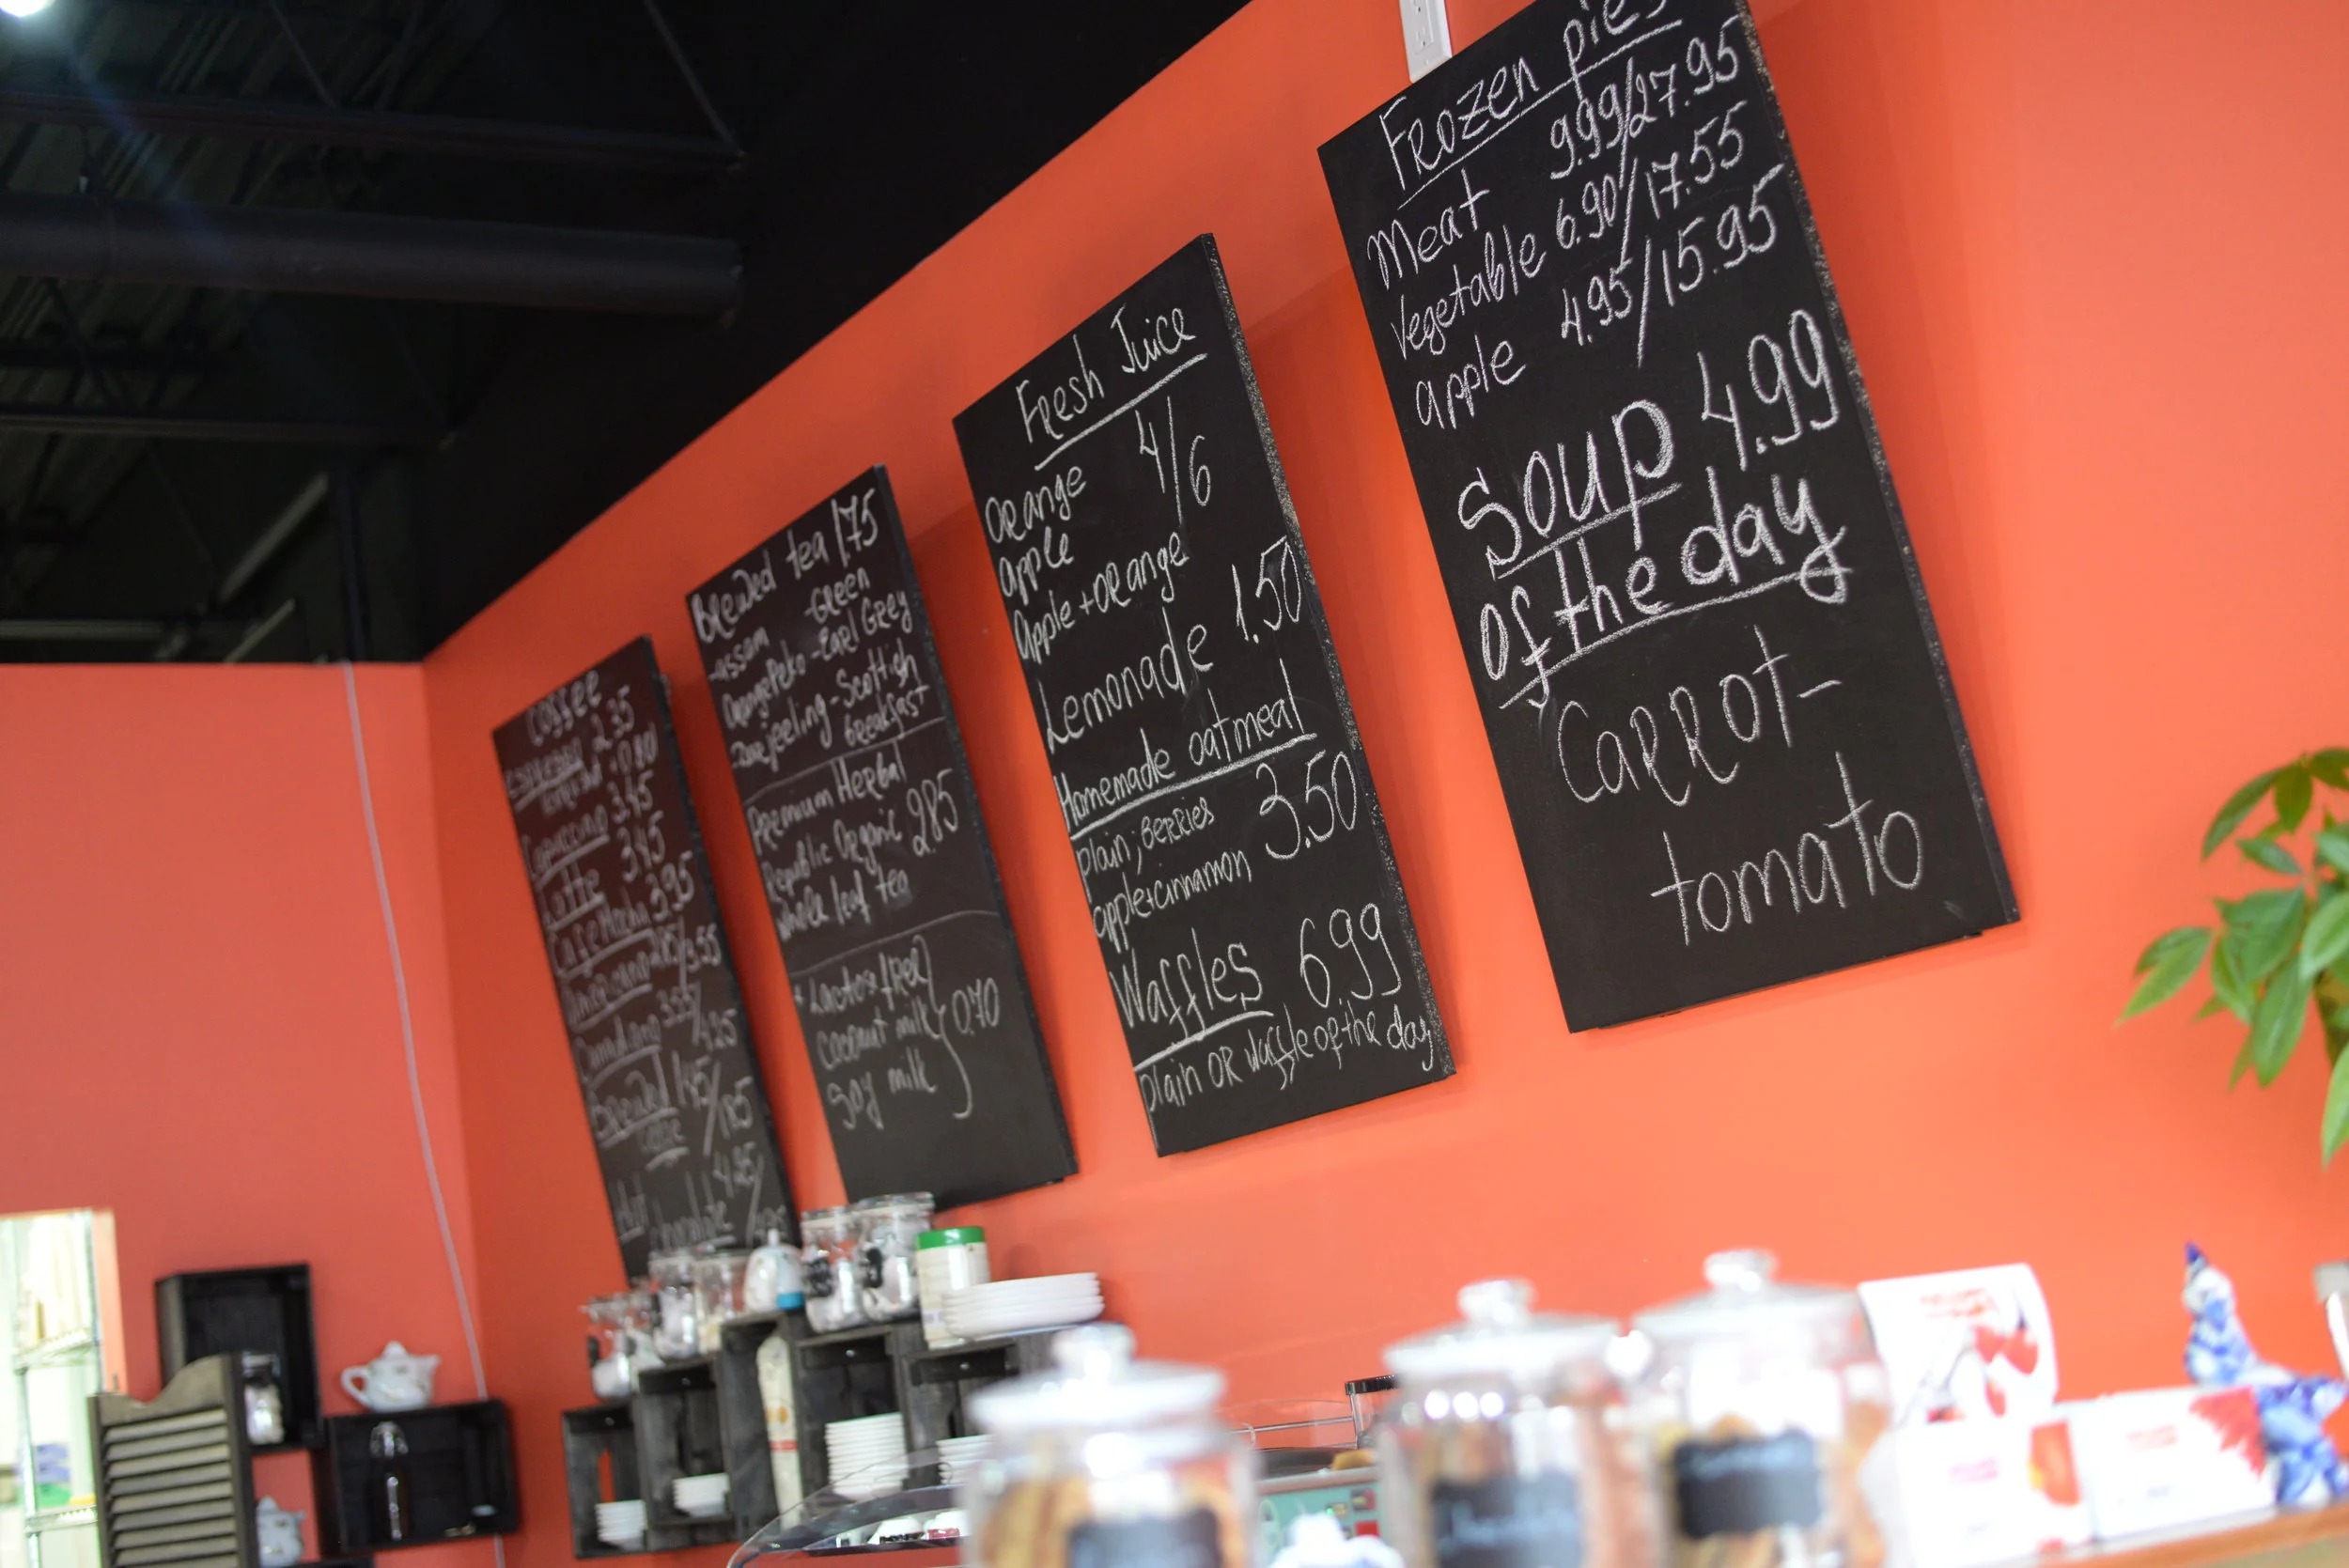 Coffee
Espresso 2.35
0.80
Cappuccino 3.45
Latte 3.45
Cafe Mocha 3.95
Americano 2.85/3.55
3.55/4.25
Brewed 1.45/1.85
Hot chocolate 4.25/
Brewed tea 1.75
-assam -Green
OrangePeko -Earl Grey
-Darjeeling -Scottish
breakfast
Premium Herbal
Republic Organic 2.85
whole leaf tea
+ Lactose free
Coconut milk 0.70
Soy milk
Fresh Juice
Orange 4/6
Apple
Apple + orange
Lemonade 1.50
Homemade oatmeal
plain, berries 3.50
apple+cinnamon
Waffles 6.99
plain or waffle of the day
Frozen pies
Meat 9.99/27.95
Vegetable 6.90/17.55
apple 4.95/15.95
Soup 4.99
of the day
Carrot-
tomato